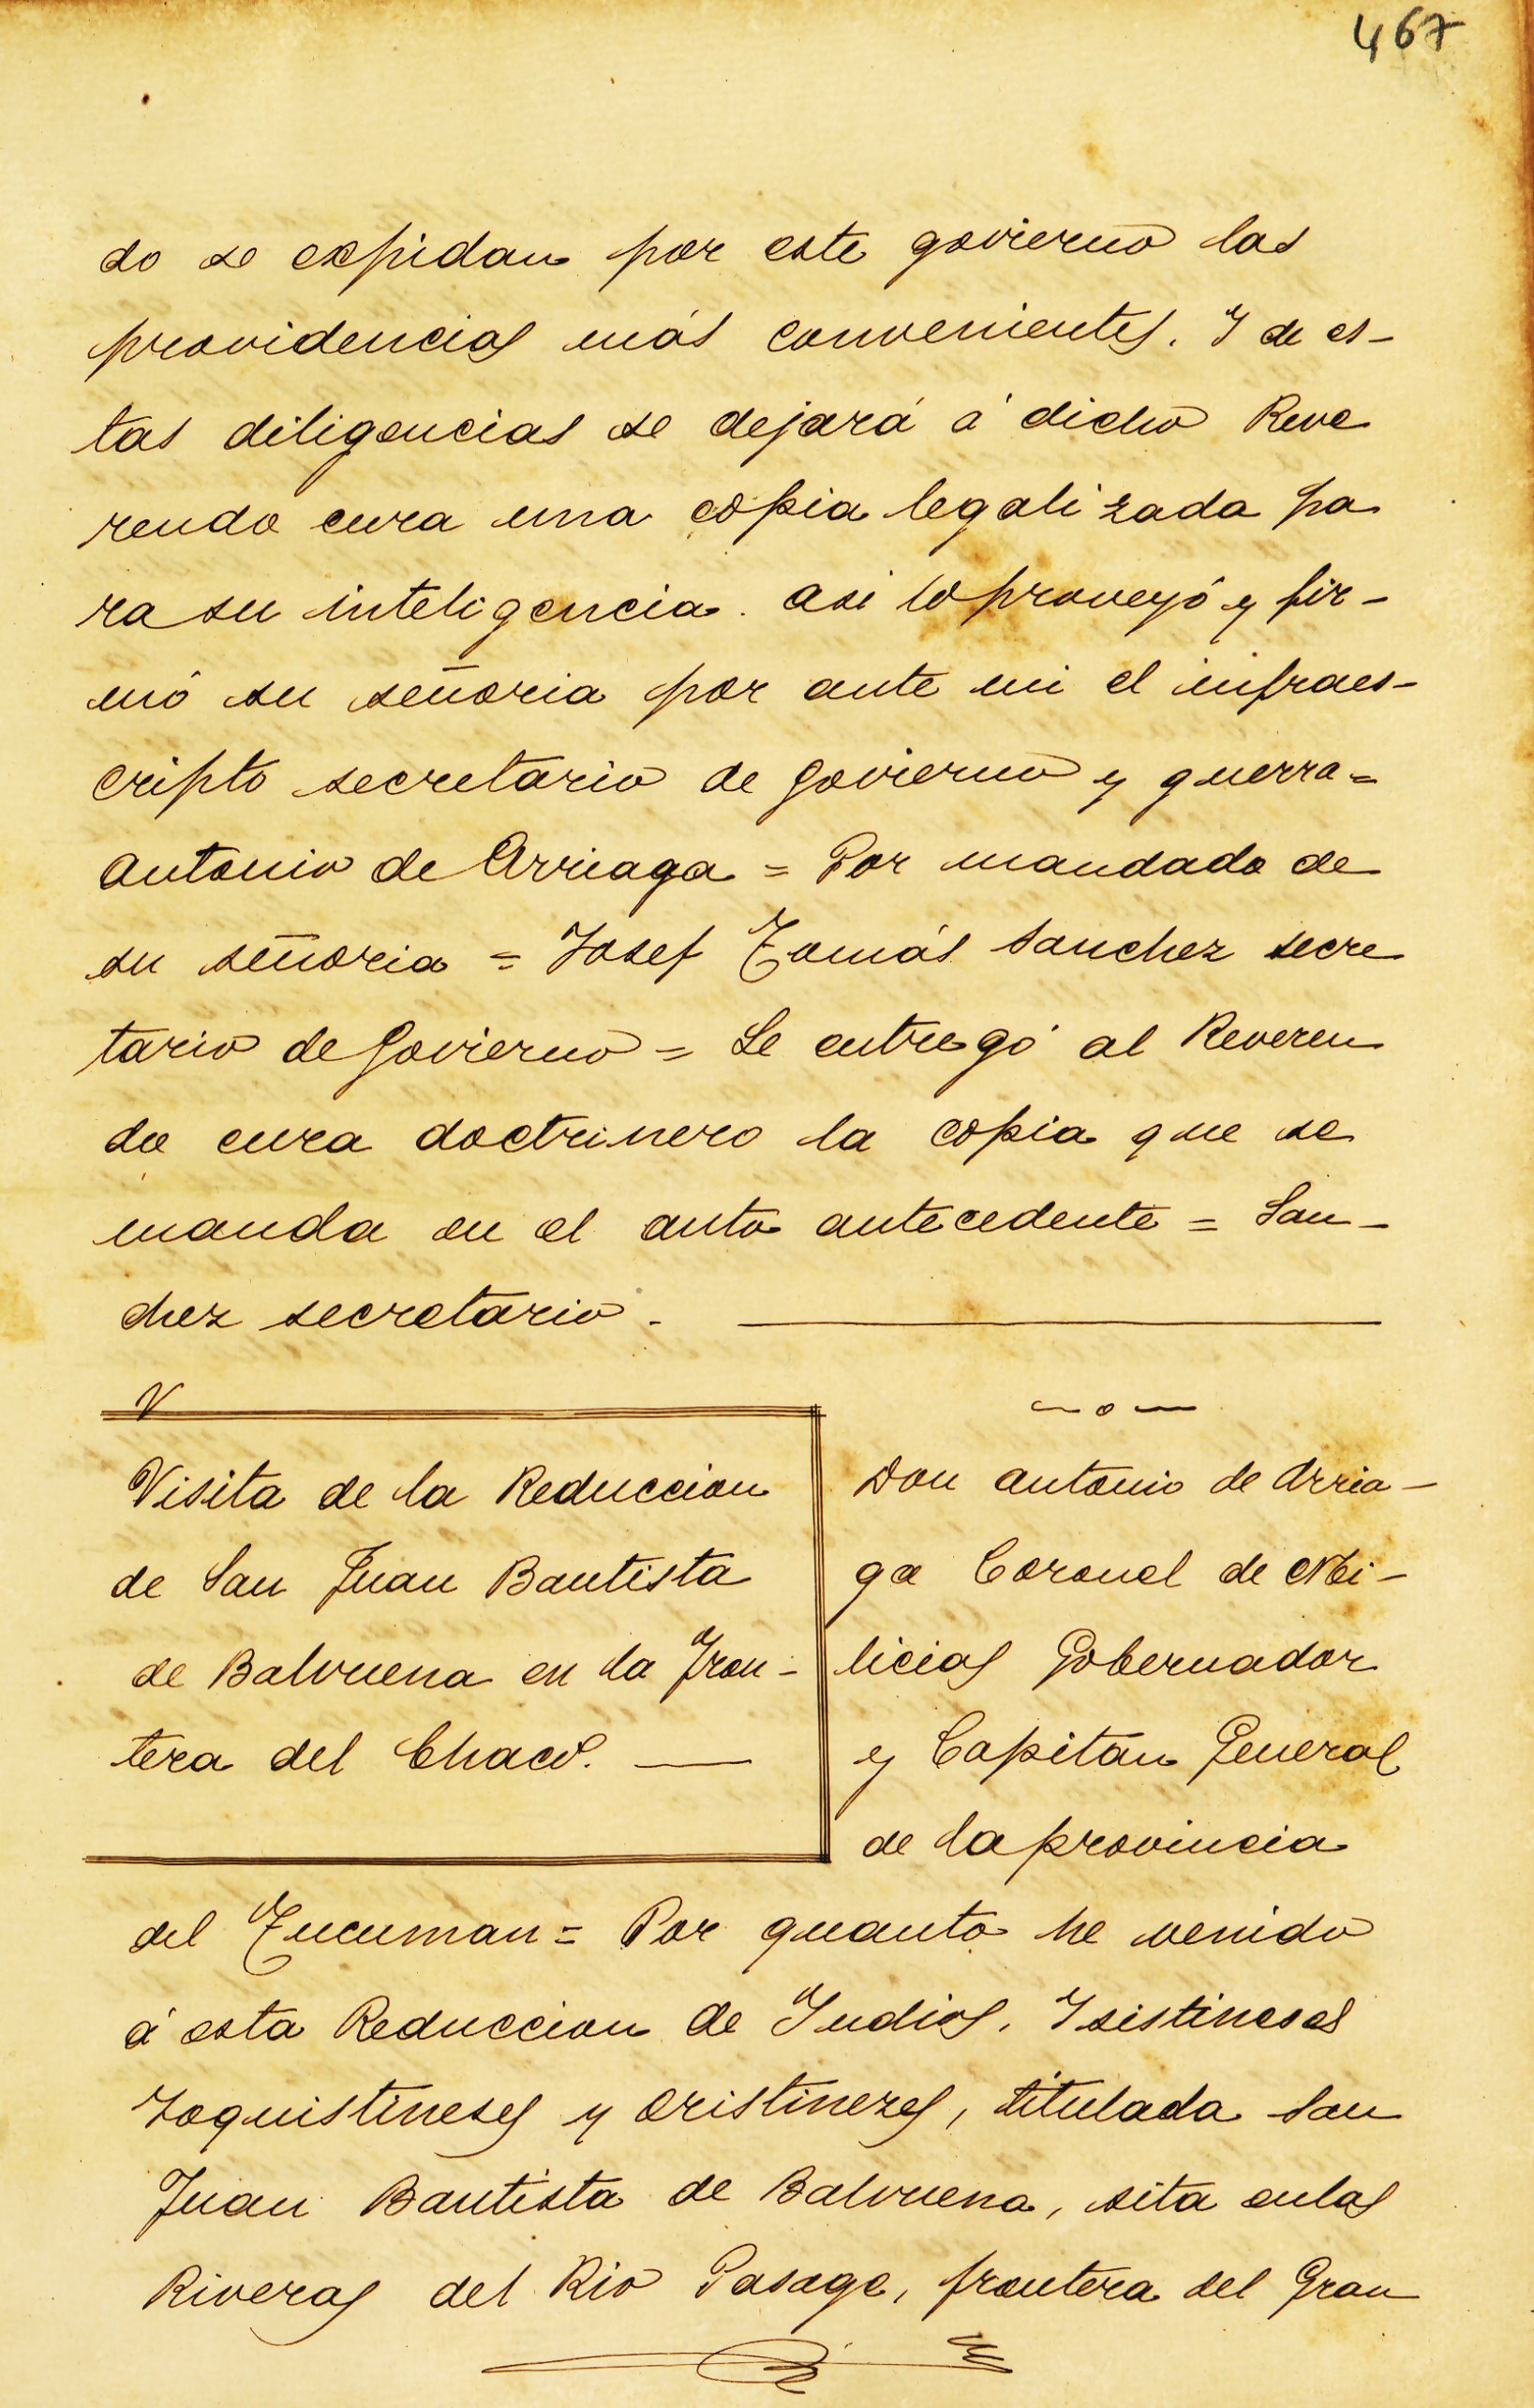 467
do se expidan por este govierno las
providencias más convenientes. Y de es-
tas diligencias se dejará á dicho Reve
rendo cura una copia legalizada pa
ra su inteligencia. asi lo proveyó y fir-
mó su señoria por ante mi el infraes-
cripto secretario de govierno y guerra =
Antonio de Arriaga = Por mandado de
su señoria = Josef Tomás Sanchez secre
tario de Govierno = Se entregó al Reveren
do cura doctrinero la copia que se
manda en el auto antecedente = San-
chez secretario. —
V
Visita de la Reduccion
de San Juan Bautista
de Balvuena en la Fron-
tera del Chaco. —
— o —
Don Antonio de Arria-
ga Coronel de Mi-
licias Gobernador
y Capitan General
de la provincia
del Tucuman = Por quanto he venido
á esta Reduccion de Indios, Isistineses
Toquistineses y Oristinezes, titulada San
Juan Bautista de Balvuena, sita en las
Riveras del Rio Pasage, frontera del Gran